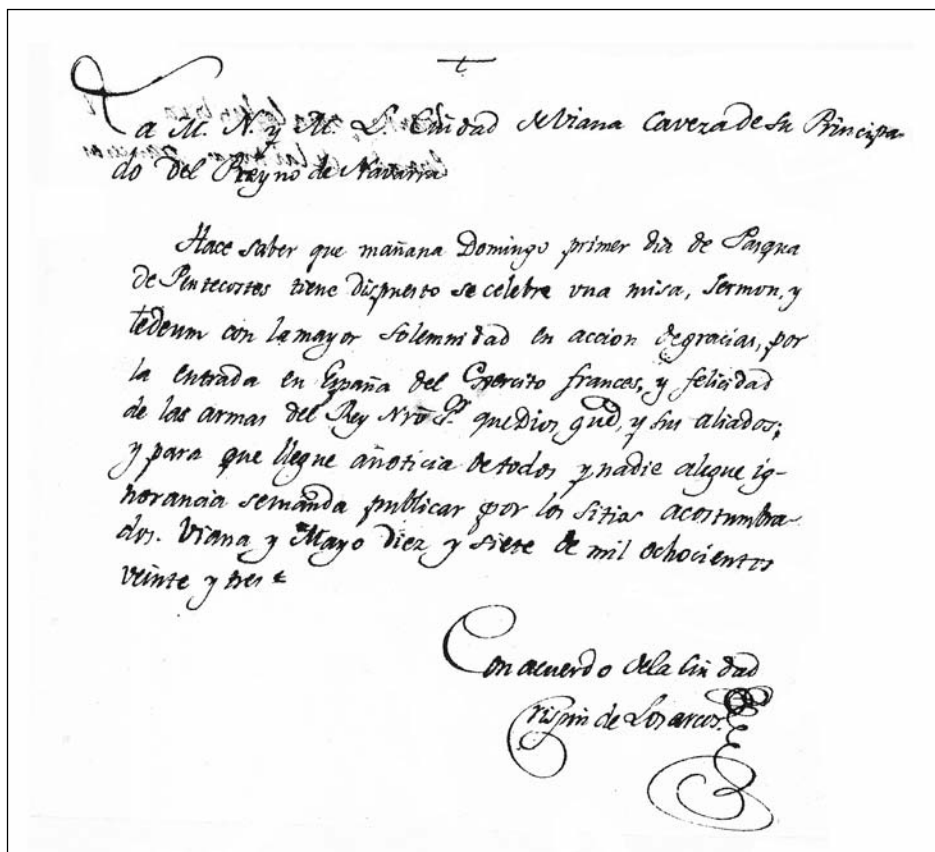 La M. N. y M. L. Ciudad de Viana Caveza de su Principa-
do del Reyno de Navarra
Hace saber que mañana Domingo primer dia de Pasqua
de Pentecostes tiene dispuesto se celebre una misa, Sermon, y
tedeum con la mayor Solemnidad en accion de gracias, por
la entrada en España del Exercito frances, y felicidad
de las armas del Rey Nrõ Sr. que Dios gue, y sus aliados;
y para que llegue a noticia de todos y nadie alegue ig-
norancia se manda publicar por los sitios acostumbra-
dos. Viana y Mayo Diez y siete de mil ochocientos
veinte y tres
Con acuerdo de la Ciudad
Crispin de Los arcos